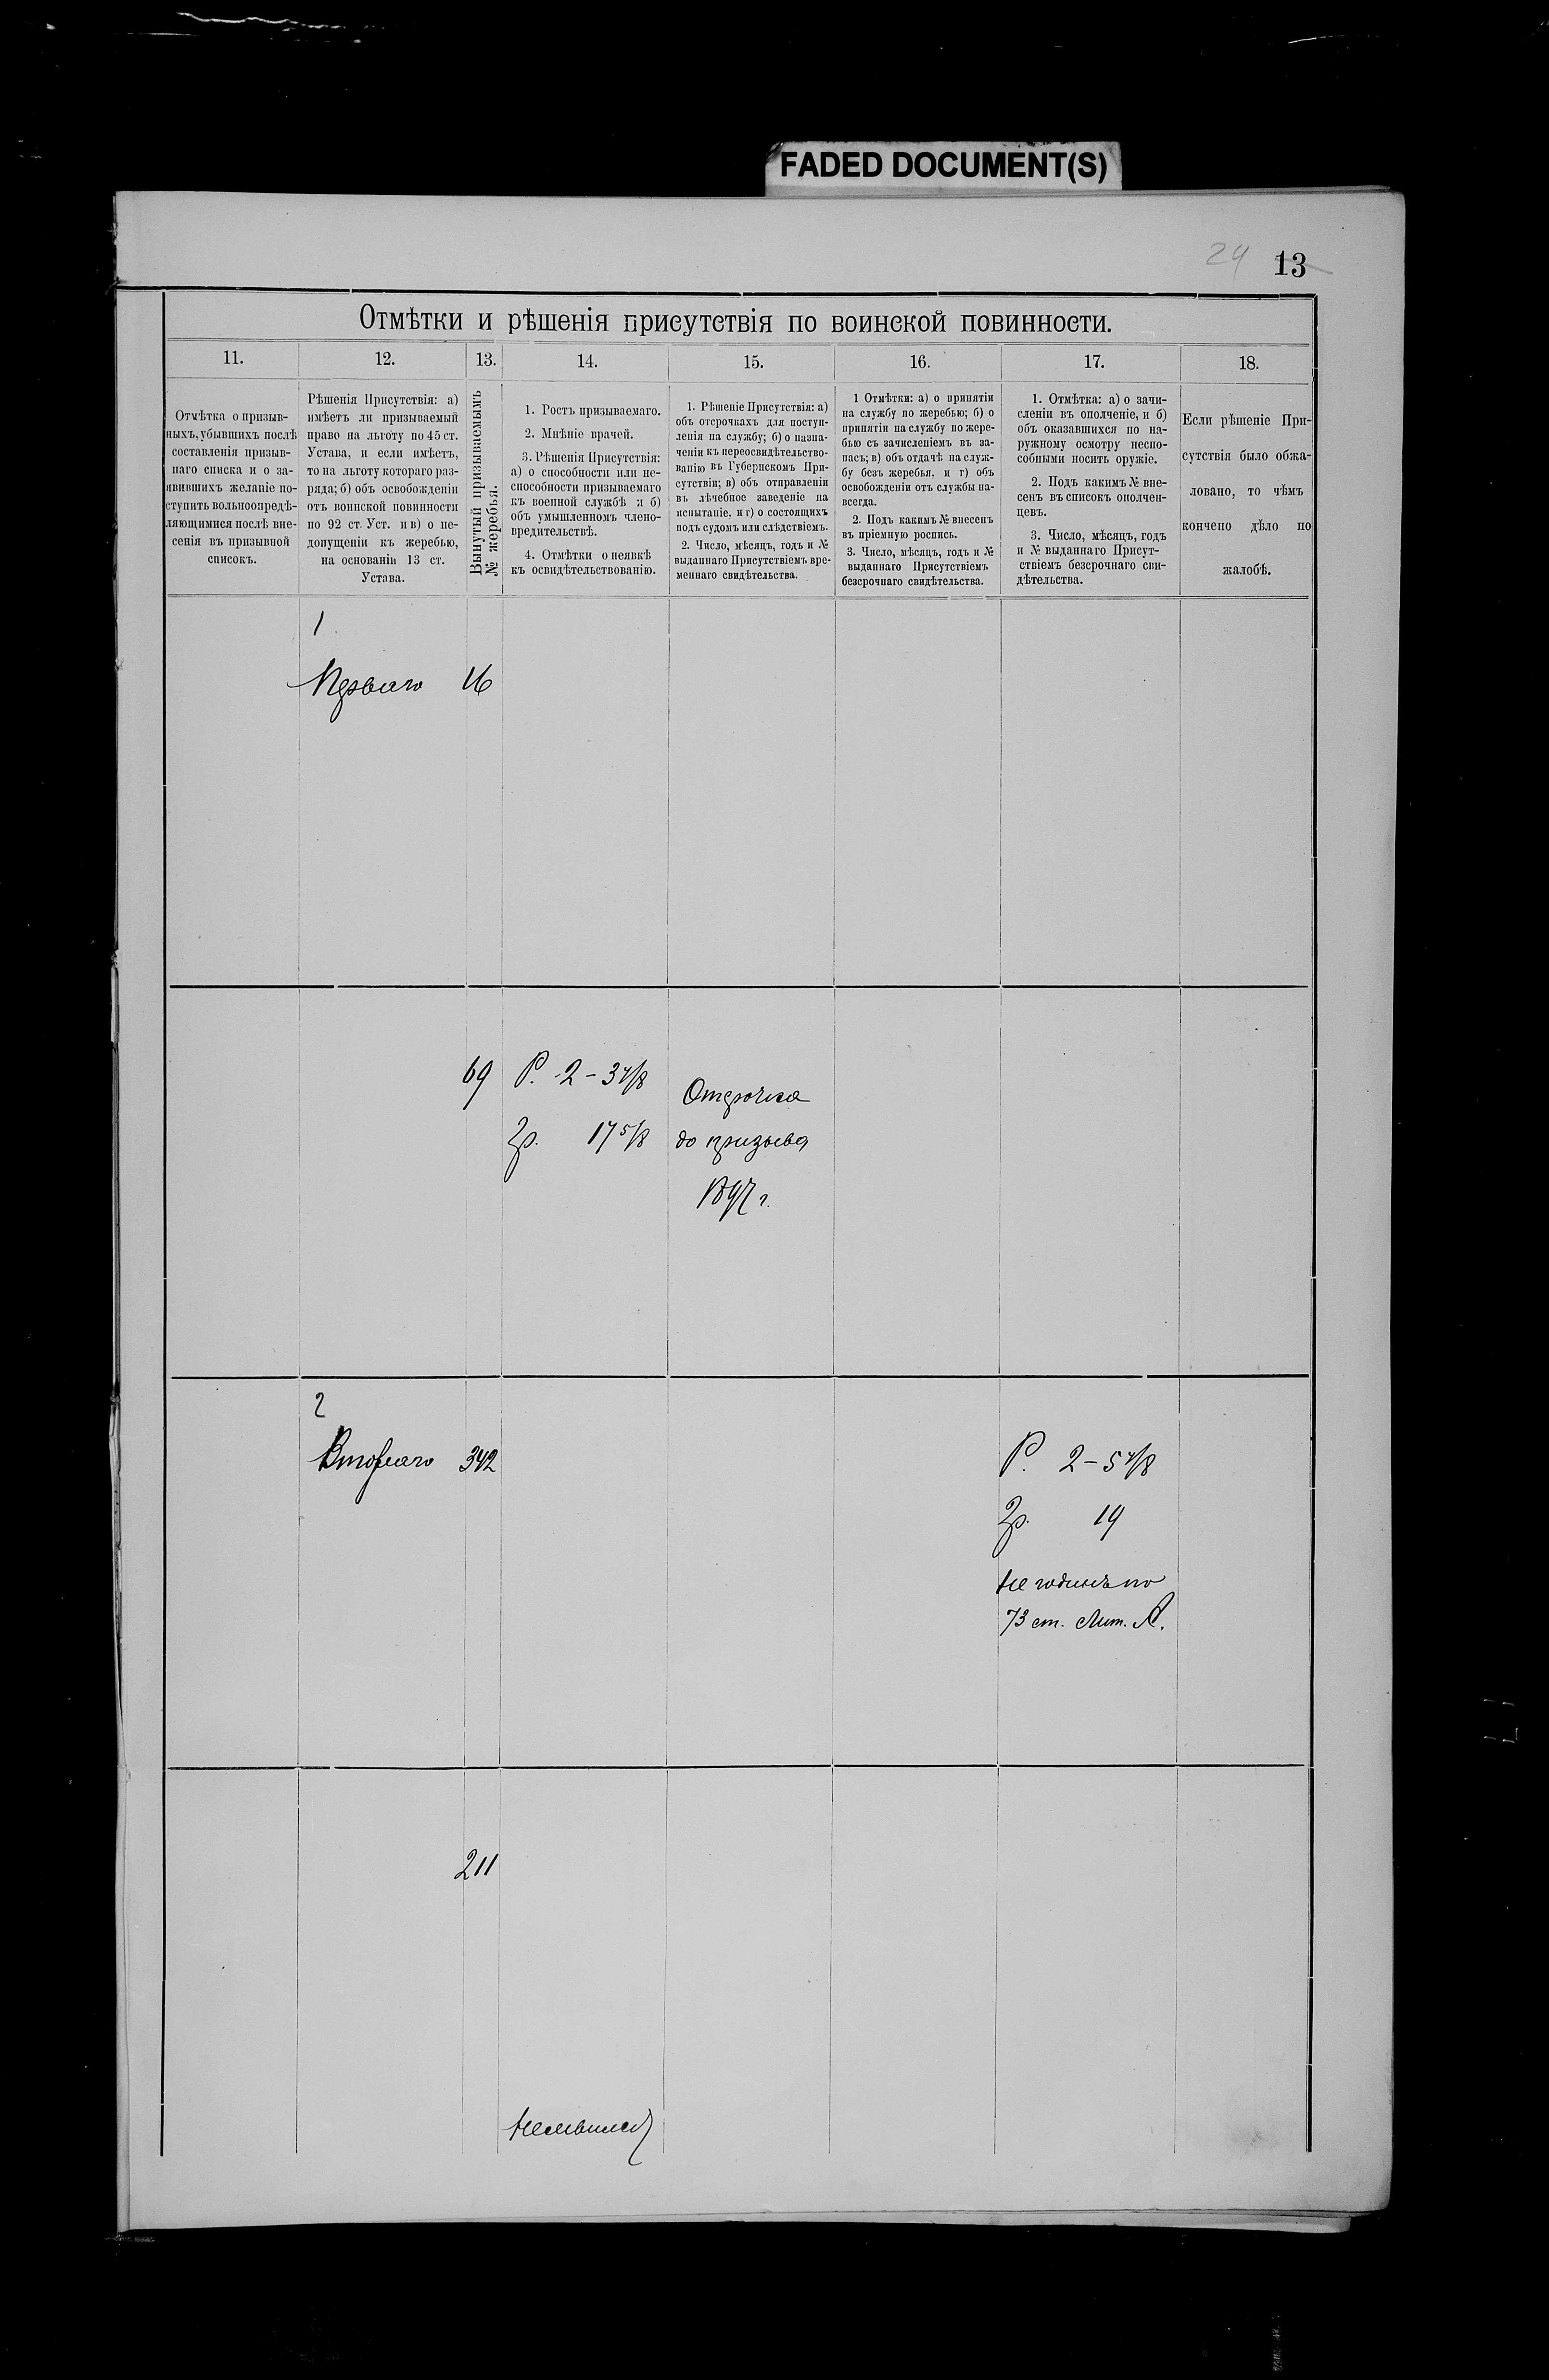 FADED DOCUMENT(S)
24 13
Отмѣтки и рѣшенія присутствія по воинской повинности.
11.
12.
13.
14.
15.
16.
17.
18.
Отмѣтка о призыв-
ныхъ, убывшихъ послѣ
составленія призыв-
наго списка и о за-
явившихъ желаніе по-
ступить вольноопредѣ-
ляющимися послѣ вне-
сенія въ призывной
списокъ.
Рѣшенія Присутствія: а)
имѣетъ ли призываемый
право на льготу по 45 ст.
Устава, и если имѣетъ,
то на льготу котораго раз-
ряда; б) объ освобожденіи
отъ воинской повинности
по 92 ст. Уст. и в) о не-
допущеніи къ жеребью,
на основаніи 13 ст.
Устава.
Вынутый призываемымъ
№ жеребья.
1. Ростъ призываемаго.
2. Мнѣніе врачей.
3. Рѣшенія Присутствія:
а) о способности или не-
способности призываемаго
къ военной службѣ и б)
объ умышленномъ члено-
вредительствѣ.
4. Отмѣтки о неявкѣ
къ освидѣтельствованію.
1. Рѣшеніе Присутствія: а)
объ отсрочкахъ для поступ-
ленія на службу; б) о назна-
ченіи къ переосвидѣтельство-
ванію въ Губернскомъ При-
сутствіи; в) объ отправленіи
въ лѣчебное заведеніе на
испытаніе, и г) о состоящихъ
подъ судомъ или слѣдствіемъ.
2. Число, мѣсяцъ, годъ и №
выданнаго Присутствіемъ вре-
меннаго свидѣтельства.
1 Отмѣтки: а) о принятіи
на службу по жеребью; б) о
принятіи на службу по жере-
бью съ зачисленіемъ въ за-
пасъ; в) объ отдачѣ на служ-
бу безъ жеребья, и г) объ
освобожденіи отъ службы на-
всегда.
2. Подъ какимъ № внесенъ
въ пріемную роспись.
3. Число, мѣсяцъ, годъ и №
выданнаго Присутствіемъ
безсрочнаго свидѣтельства.
1. Отмѣтка: а) о зачи-
сленіи въ ополченіе, и б)
объ оказавшихся по на-
ружному осмотру неспо-
собными носить оружіе.
2. Подъ какимъ № вне-
сенъ въ списокъ ополчен-
цевъ.
3. Число, мѣсяцъ, годъ
и № выданнаго Присут-
ствіемъ безсрочнаго сви-
дѣтельства.
Если рѣшеніе При-
сутствія было обжа-
ловано, то чѣмъ
кончено дѣло по
жалобѣ.
1
Перваго 16
69 Р. 2-3 4/8
Гр. 17 5/8
Отсрочка
до призыва
1897 г.
2
Втораго 342
Р. 2-5 4/8
Гр. 19
Не годенъ по
73 ст. Лит. А.
211
Неявился